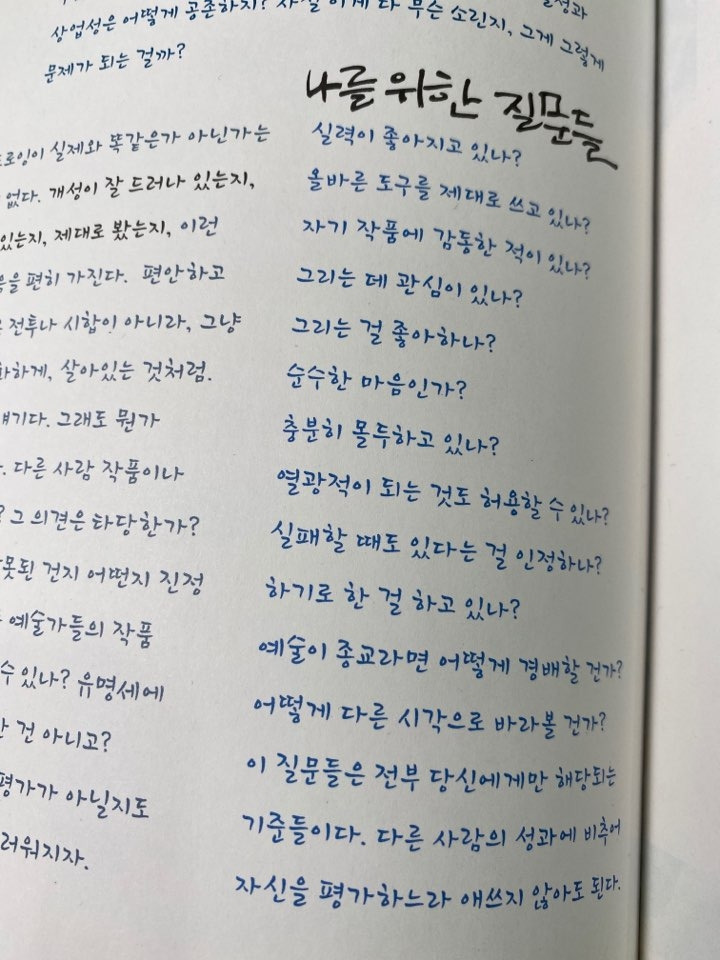 상업성은 어떻게 공존하지? 사실 이게 다 무슨 소린지, 그게 그렇게
문제가 되는 걸까?
실제와 똑같은가 아닌가는
없다. 개성이 잘 드러나 있는지,
있는지, 제대로 봤는지, 이런
편히 가진다. 편안하고
전투나 시합이 아니라, 그냥
살아있는 것처럼.
그래도 뭔가
다른 사람 작품이나
그 의견은 타당한가?
건지 어떤지 진정
예술가들의 작품
수 있나? 유명세에
건 아니고?
평가가 아닐지도
나를 위한 질문들
실력이 좋아지고 있나?
올바른 도구를 제대로 쓰고 있나?
자기 작품에 감동한 적이 있나?
그리는 데 관심이 있나?
그리는 걸 좋아하나?
순수한 마음인가?
충분히 몰두하고 있나?
열광적이 되는 것도 허용할 수 있나?
실패할 때도 있다는 걸 인정하나?
하기로 한 걸 하고 있나?
예술이 종교라면 어떻게 경배할 건가?
어떻게 다른 시각으로 바라볼 건가?
이 질문들은 전부 당신에게만 해당되는
기준들이다. 다른 사람의 성과에 비추어
자신을 평가하느라 애쓰지 않아도 된다.